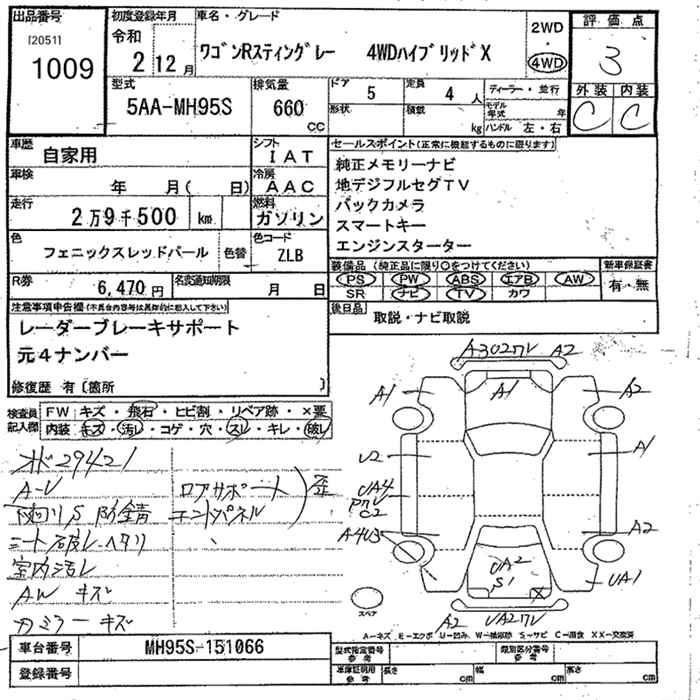 出品番号
[20511
1009
初度登録年月
令和
2 12月
車名・グレード
ワゴンRスティングレー 4WDハイブリッドX
2WD
・
4WD
評価点
3
外装 内装
C C
型式
5AA-MH95S
排気量
660
CC
ドア
5
定員
4 人
形状
積載
kg
ディーラー・並行
モデル年式 年
ハンドル 左・右
車歴
自家用
シフト
IAT
車検
年 月( 日)
冷房
AAC
走行
2万9千500 km
燃料
ガソリン
色
フェニックスレッドパール
色替
色コード
ZLB
R券
6,470円
名変通知期限
月 日
セールスポイント(正常に機能するものに限ります)
純正メモリーナビ
地デジフルセグTV
バックカメラ
スマートキー
エンジンスターター
装備品 (純正品に限り○をつけてください)
PS PW ABS エアB AW
SR ナビ TV カワ
新車保証書
有・無
後日品
取説・ナビ取説
注意事項申告欄(不具合内容等は具体的に記入して下さい)
レーダーブレーキサポート
元4ナンバー
修復歴 有〔箇所 〕
検査員記入欄
FW キズ・飛石・ヒビ割・リペア跡・×要
内装 キズ・汚レ・コゲ・穴・スレ・キレ・破レ
29421
A-U
下回りS 防錆
シート破レ ヘタリ
室内汚レ
AW キズ
カミラー キズ
ロアサポート
エンドパネル
歪
A302ワレ A2
A1
A1
A2
U2
A1
UA4
C2
A4U3
A2
UA2
S1
X
UA1
A2
UA2ワレ
スペア
A-キズ E-エクボ U-凹み W-補修跡 S-サビ C-腐食 XX-交換済
車台番号
MH95S-151066
登録番号
型式指定番号
参考
類別区分番号
参考
車庫証明用
参考
長さ cm
幅 cm
高さ cm